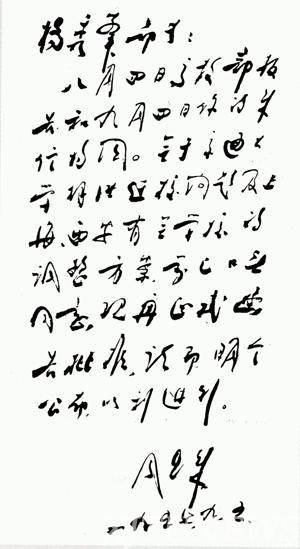 杨秀峰部长：
八月四日高教部报
告和九月四日你的来
信均阅。关于交通大
学解决迁校问题及上
海、西安有关学校的
调整方案，我已口头
同意，现再正式
告批准，请即明令
公布，以利进行。
周恩来
一九五七.九.五.